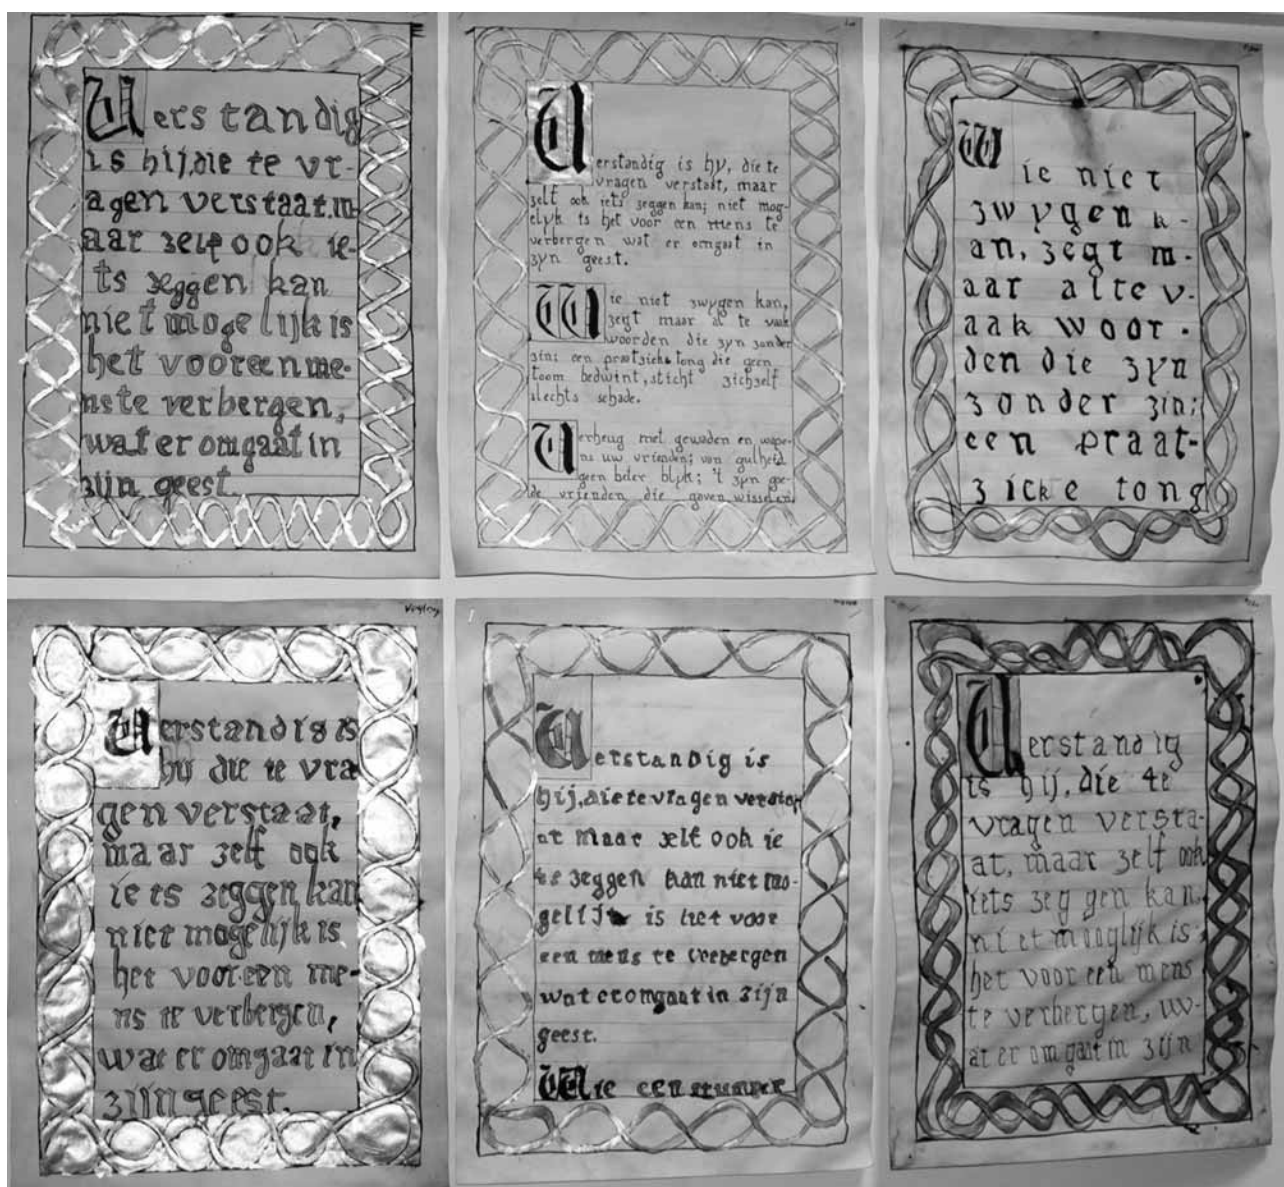 Verstandig
is hij, die te vr-
agen verstaat, m-
aar zelf ook ie-
ts zeggen kan
niet mogelijk is
het voor een me-
nste verbergen,
wat er omgaat in
zijn geest.
Verstandig is hy, die te
vragen verstaat, maar
zelf ook iets zeggen kan; niet mog-
elyk is het voor een mens te
verbergen wat er omgaat in
zyn geest.
Wie niet zwygen kan,
zegt maar al te vaak
woorden die zyn zonder
zin: een praatzieke tong die geen
toom bedwint, sticht zichzelf
slechts schade.
Verheug met gewaden en wape-
ns uw vrienden; van gulheid
geen beter blyk; 't zyn goe-
de vrienden die gaven wisselen
Wie niet
zwygen k-
an, zegt m-
aar al te v-
aak woor-
den die zyn
zonder zin;
een praat-
zicke tong
Verstandig is
hij die te vra
gen verstaat,
maar zelf ook
iets zeggen kan
niet mogelijk is
het voor een me-
ns te verbergen,
wat er omgaat in
zijn geest.
Verstandig is
hij, die te vragen versta
at maar zelf ook ie
ts zeggen kan niet mo-
gelijk is het voor
een mens te verbergen
wat er omgaat in zijn
geest.
Wie een
Verstandig
is hij, die te
vragen versta-
at, maar zelf ook
iets zeg gen kan,
niet mooglijk is
het voor een mens
te verbergen, w-
at er omgaat in zijn